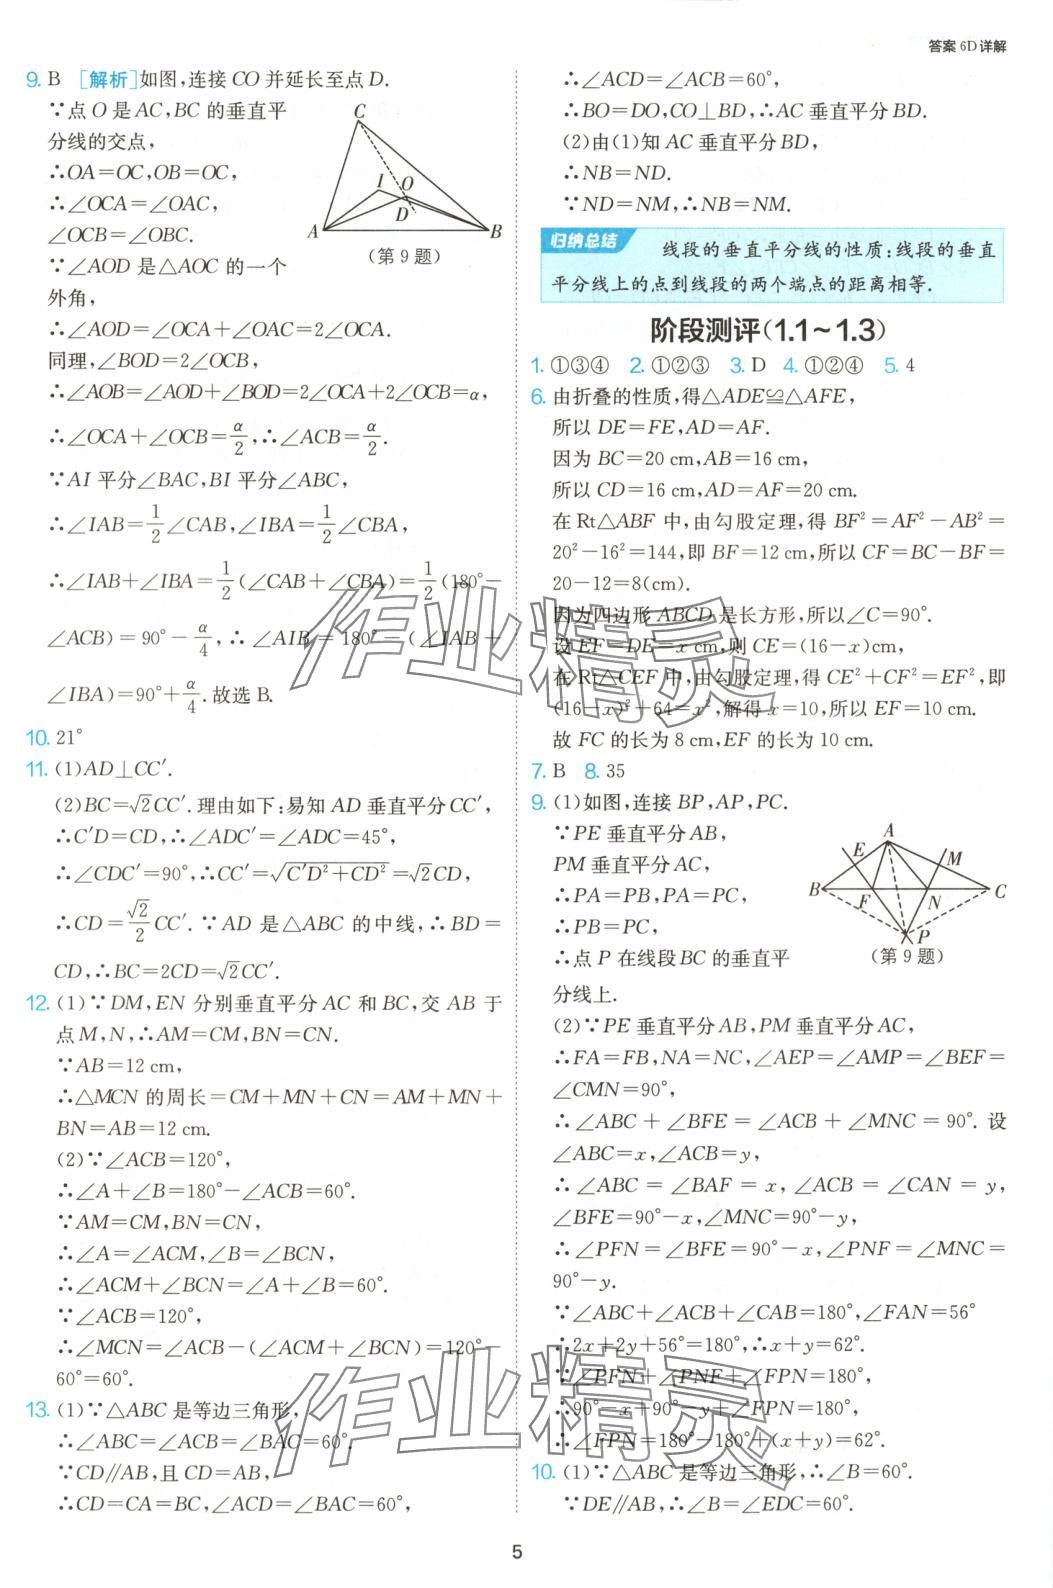 答案 6D详解
9. B [解析]如图,连接 CO 并延长至点 D.
∵点 O 是 AC,BC 的垂直平
分线的交点,
∴OA=OC,OB=OC,
∴∠OCA=∠OAC,
∠OCB=∠OBC.
∵∠AOD 是△AOC 的一个
外角,
C
I
O
D
A
B
(第 9 题)
∴∠AOD=∠OCA+∠OAC=2∠OCA.
同理,∠BOD=2∠OCB,
∴∠AOB=∠AOD+∠BOD=2∠OCA+2∠OCB=α,
∴∠OCA+∠OCB=α/2,∴∠ACB=α/2.
∵AI 平分∠BAC,BI 平分∠ABC,
∴∠IAB=1/2∠CAB,∠IBA=1/2∠CBA,
∴∠IAB+∠IBA=1/2(∠CAB+∠CBA)=1/2(180°−
∠ACB)=90°−α/4,∴∠AIB=180°−(∠IAB+
∠IBA)=90°+α/4.故选 B.
10. 21°
11. (1)AD⊥CC′.
(2)BC=√2CC′.理由如下:易知 AD 垂直平分CC′,
∴C′D=CD,∴∠ADC′=∠ADC=45°,
∴∠CDC′=90°,∴CC′=√(C′D²+CD²)=√2CD,
∴CD=√2/2CC′.∵AD 是△ABC 的中线,∴BD=
CD,∴BC=2CD=√2CC′.
12. (1)∵DM,EN 分别垂直平分 AC 和 BC,交 AB 于
点 M,N,∴AM=CM,BN=CN.
∵AB=12 cm,
∴△MCN 的周长=CM+MN+CN=AM+MN+
BN=AB=12 cm.
(2)∵∠ACB=120°,
∴∠A+∠B=180°−∠ACB=60°.
∵AM=CM,BN=CN,
∴∠A=∠ACM,∠B=∠BCN,
∴∠ACM+∠BCN=∠A+∠B=60°.
∵∠ACB=120°,
∴∠MCN=∠ACB−(∠ACM+∠BCN)=120°−
60°=60°.
13. (1)∵△ABC 是等边三角形,
∴∠ABC=∠ACB=∠BAC=60°.
∵CD∥AB,且 CD=AB,
∴CD=CA=BC,∠ACD=∠BAC=60°,
∴∠ACD=∠ACB=60°,
∴BO=DO,CO⊥BD,∴AC 垂直平分 BD.
(2)由(1)知 AC 垂直平分 BD,
∴NB=ND.
∵ND=NM,∴NB=NM.
归纳总结 线段的垂直平分线的性质:线段的垂直
平分线上的点到线段的两个端点的距离相等.
阶段测评(1.1~1.3)
1. ①③④ 2. ①②③ 3. D 4. ①②④ 5. 4
6. 由折叠的性质,得△ADE≌△AFE,
所以 DE=FE,AD=AF.
因为 BC=20 cm,AB=16 cm,
所以 CD=16 cm,AD=AF=20 cm.
在 Rt△ABF 中,由勾股定理,得 BF²=AF²−AB²=
20²−16²=144,即 BF=12 cm,所以 CF=BC−BF=
20−12=8(cm).
因为四边形 ABCD 是长方形,所以∠C=90°.
设 EF=DE=x cm,则 CE=(16−x)cm,
在 Rt△CEF 中,由勾股定理,得 CE²+CF²=EF²,即
(16−x)²+64=x²,解得 x=10,所以 EF=10 cm.
故 FC 的长为 8 cm,EF 的长为 10 cm.
7. B 8. 35
9. (1)如图,连接 BP,AP,PC.
∵PE 垂直平分 AB,
PM 垂直平分 AC,
∴PA=PB,PA=PC,
∴PB=PC,
∴点 P 在线段 BC 的垂直平
分线上.
A
E
M
B
F
N
C
P
(第 9 题)
(2)∵PE 垂直平分 AB,PM 垂直平分 AC,
∴FA=FB,NA=NC,∠AEP=∠AMP=∠BEF=
∠CMN=90°,
∴∠ABC+∠BFE=∠ACB+∠MNC=90°.设
∠ABC=x,∠ACB=y,
∴∠ABC=∠BAF=x,∠ACB=∠CAN=y,
∠BFE=90°−x,∠MNC=90°−y,
∴∠PFN=∠BFE=90°−x,∠PNF=∠MNC=
90°−y.
∵∠ABC+∠ACB+∠CAB=180°,∠FAN=56°
∴2x+2y+56°=180°,∴x+y=62°.
∵∠PFN+∠PNF+∠FPN=180°,
∴90°−x+90°−y+∠FPN=180°,
∴∠FPN=180°−180°+(x+y)=62°.
10. (1)∵△ABC 是等边三角形,∴∠B=60°.
∵DE∥AB,∴∠B=∠EDC=60°.
作业精灵
作业精灵
5